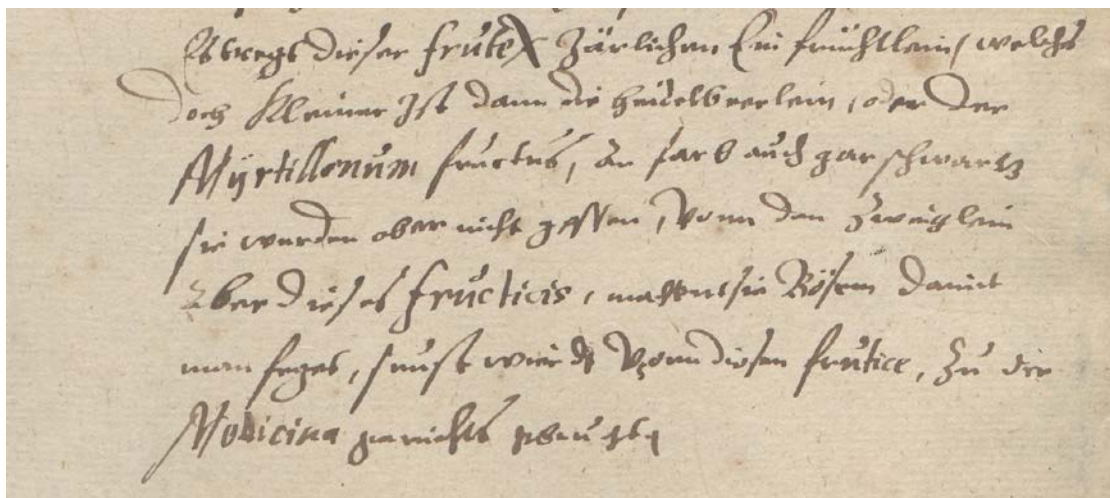 Es tregt dieser frutex Järlichen Ein früchtlein, welchs
doch Kleiner Ist dann die heidelbeerlein, oder der
Myrtillorum fructus, an farb auch gar schwartz
sie werden aber nicht gessen, Vonn den Zweiglein
aber dieses fructicis, machent sie Bösem damit
man feget, sunst wierdt Vonn diesen frutice, Zu der
Medicina gar nichts gebraucht